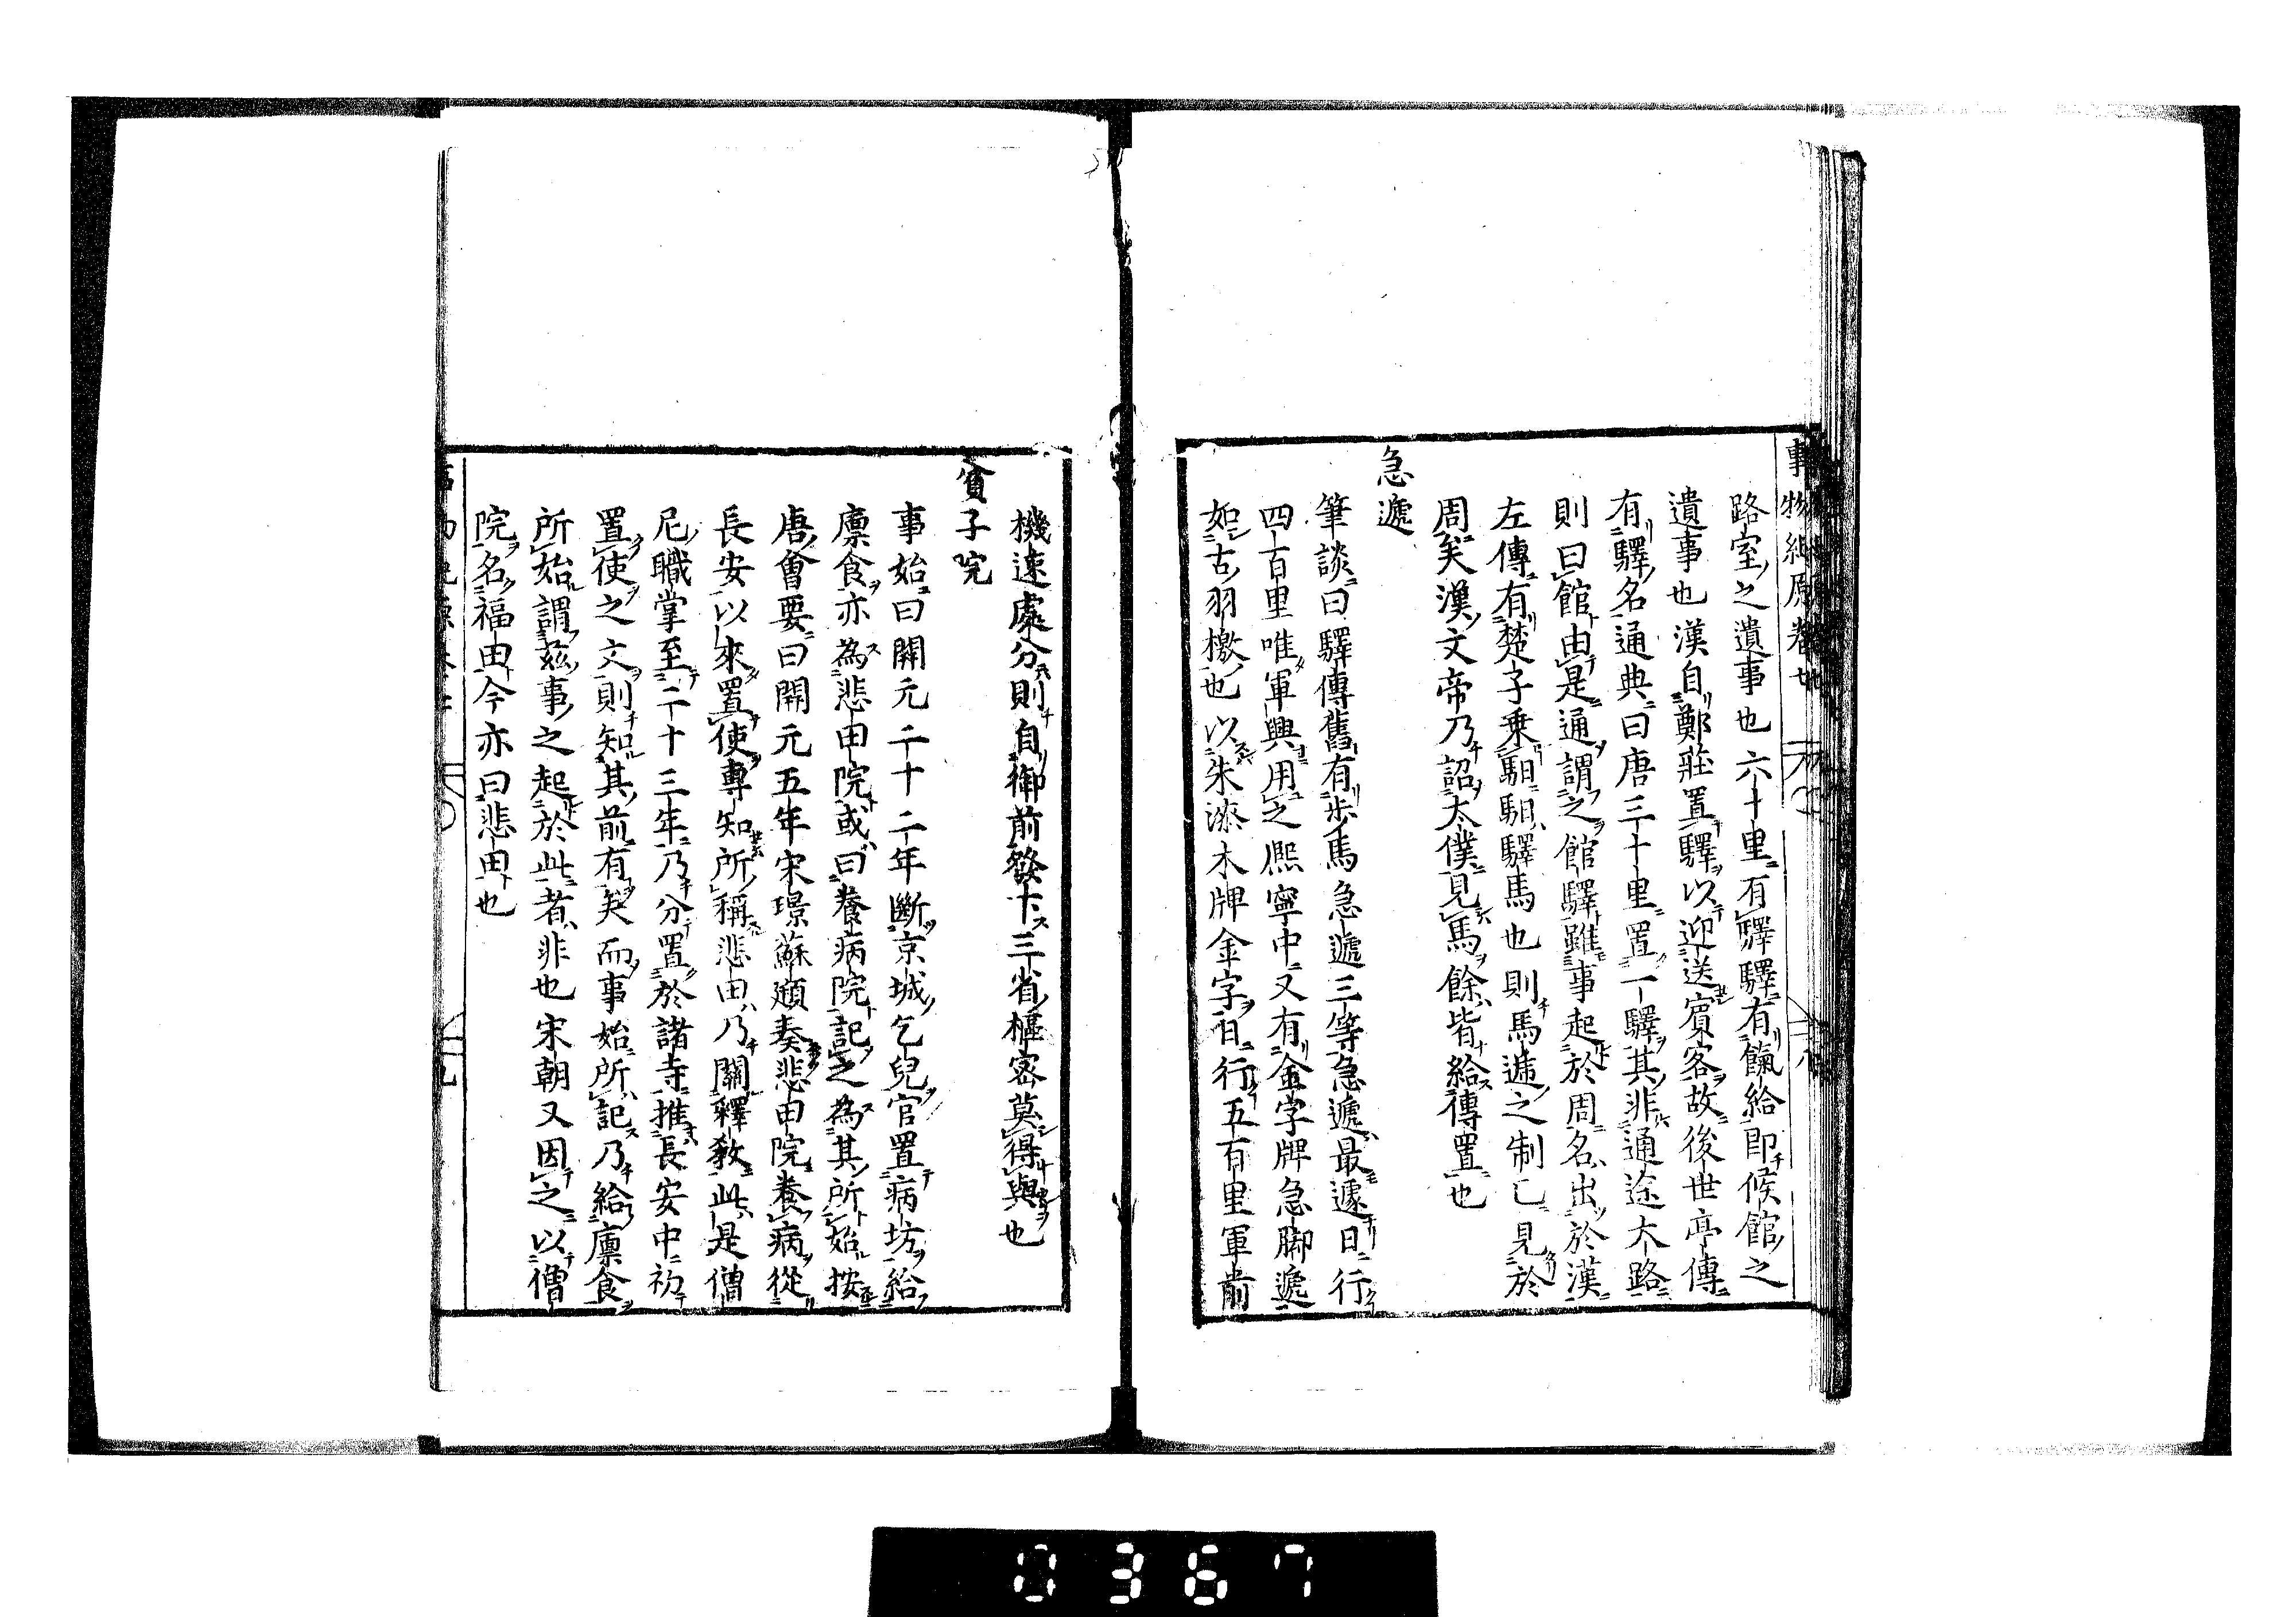 事物紀原卷七
路室之遺事也六十里有驛驛有餼給即候館之
遺事也漢自鄭莊置驛以迎送賓客故後世亭傳
有驛名通典曰唐三十里置一驛其非通途大路
則曰館由是通謂之館驛雖事起於周名出於漢
左傳有楚子乗馹馹驛馬也則馬遞之制已見於
周矣漢文帝乃詔太僕見馬餘皆給傳置也
急遞
筆談曰驛傳舊有步馬急遞三等急遞最遽日行
四百里唯軍興用之熈寧中又有金字牌急脚遞
如古羽檄也以朱漆木牌金字日行五百里軍前
機速處分則自御前發下三省樞密莫得與也
貧子院
事始曰開元二十二年斷京城乞兒官置病坊給
廩食亦為悲田院或曰養病院記之為其所始按
唐會要曰開元五年宋璟蘇頲奏悲田院養病從
長安以來置使專知所稱悲田乃關釋教此是僧
尼職掌至二十三年乃分置於諸寺推長安中初
置使之文則知其前有矣而事始所記乃給廩食
所始謂玆事之起於此者非也宋朝又因之以僧
院名福田今亦曰悲田也
0367